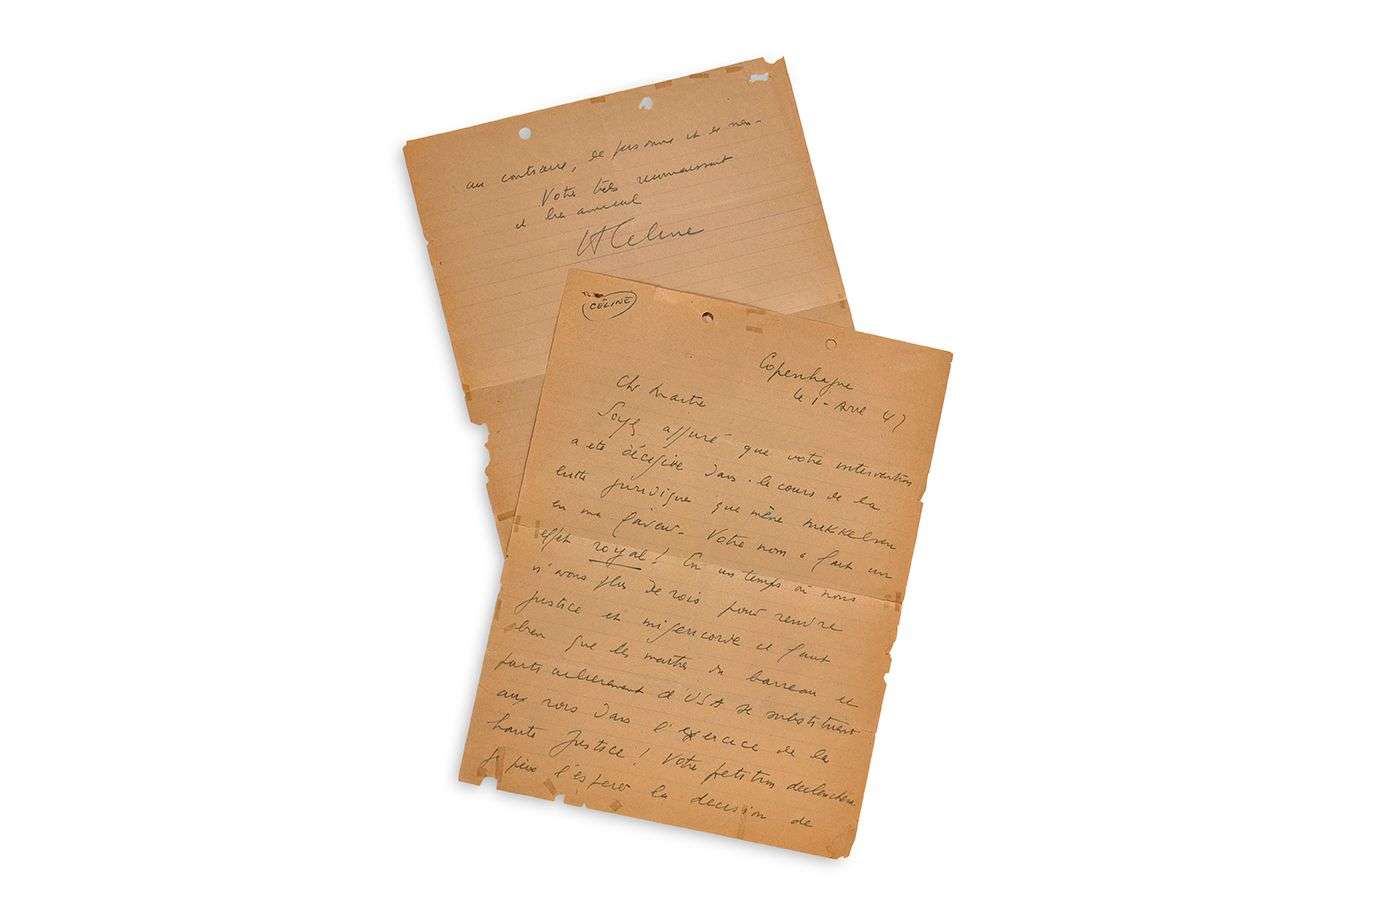 CÉLINE
Copenhague
le 1 - Avril 47
Cher Maitre
Soyez assuré que votre intervention
a été décisive dans le cours de la
lutte juridique que mène Mikkelsen
en ma faveur. Votre nom a fait un
effet royal ! En un temps où nous
n'avons plus de rois pour rendre
justice et misericorde il faut
bien que les maitres du barreau et
d'USA se substituent
aux rois dans l'exercice de la
haute Justice ! Votre petition declenchera
je peux l'esperer la decision de
au contraire, de personne et de rien -
Votre très reconnaissant
et bien amical
LF Celine